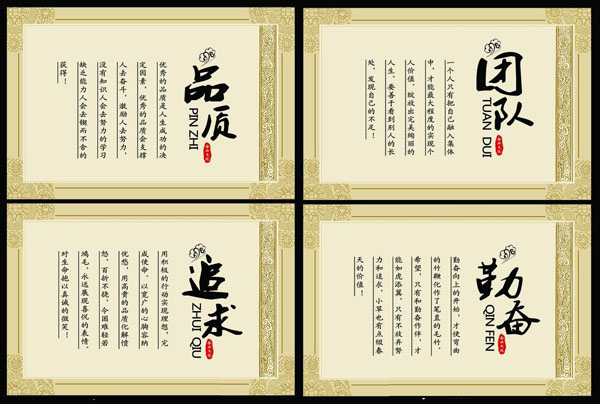 品质
PIN ZHI
优秀的品质是人生成功的决
定因素，优秀的品质会支撑
人去奋斗，激励人去努力，
没有知识人会去努力的学习
缺乏能力人会去锲而不舍的
获得！
团队
TUAN DUI
一个人只有把自己融入集体
中，才能最大程度的实现个
人价值，绽放出完美绚丽的
人生，要善于看到别人的长
处，发现自己的不足！
追求
ZHUI QIU
用积极的行动实现理想，完
成使命，以宽广的心胸容纳
优愁，用高贵的品质化解愤
怒，百折不挠，令困难轻若
鸿毛，永远展现喜悦的表情，
对生命抱以真诚的微笑！
勤奋
QIN FEN
勤奋向上的开始，才使弯曲
的竹鞭化作了笔直的毛竹。
希望，只有和勤奋作伴，才
能如虎添翼，只有不放弃努
力和追求，小草也有点缀春
天的价值！